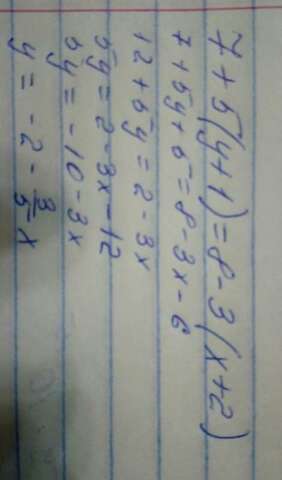 7 + 5(y+1) = 8 - 3(x+2)
7 + 5y + 5 = 8 - 3x - 6
12 + 5y = 2 - 3x
5y = 2 - 3x - 12
5y = -10 - 3x
y = -2 - 3/5 x